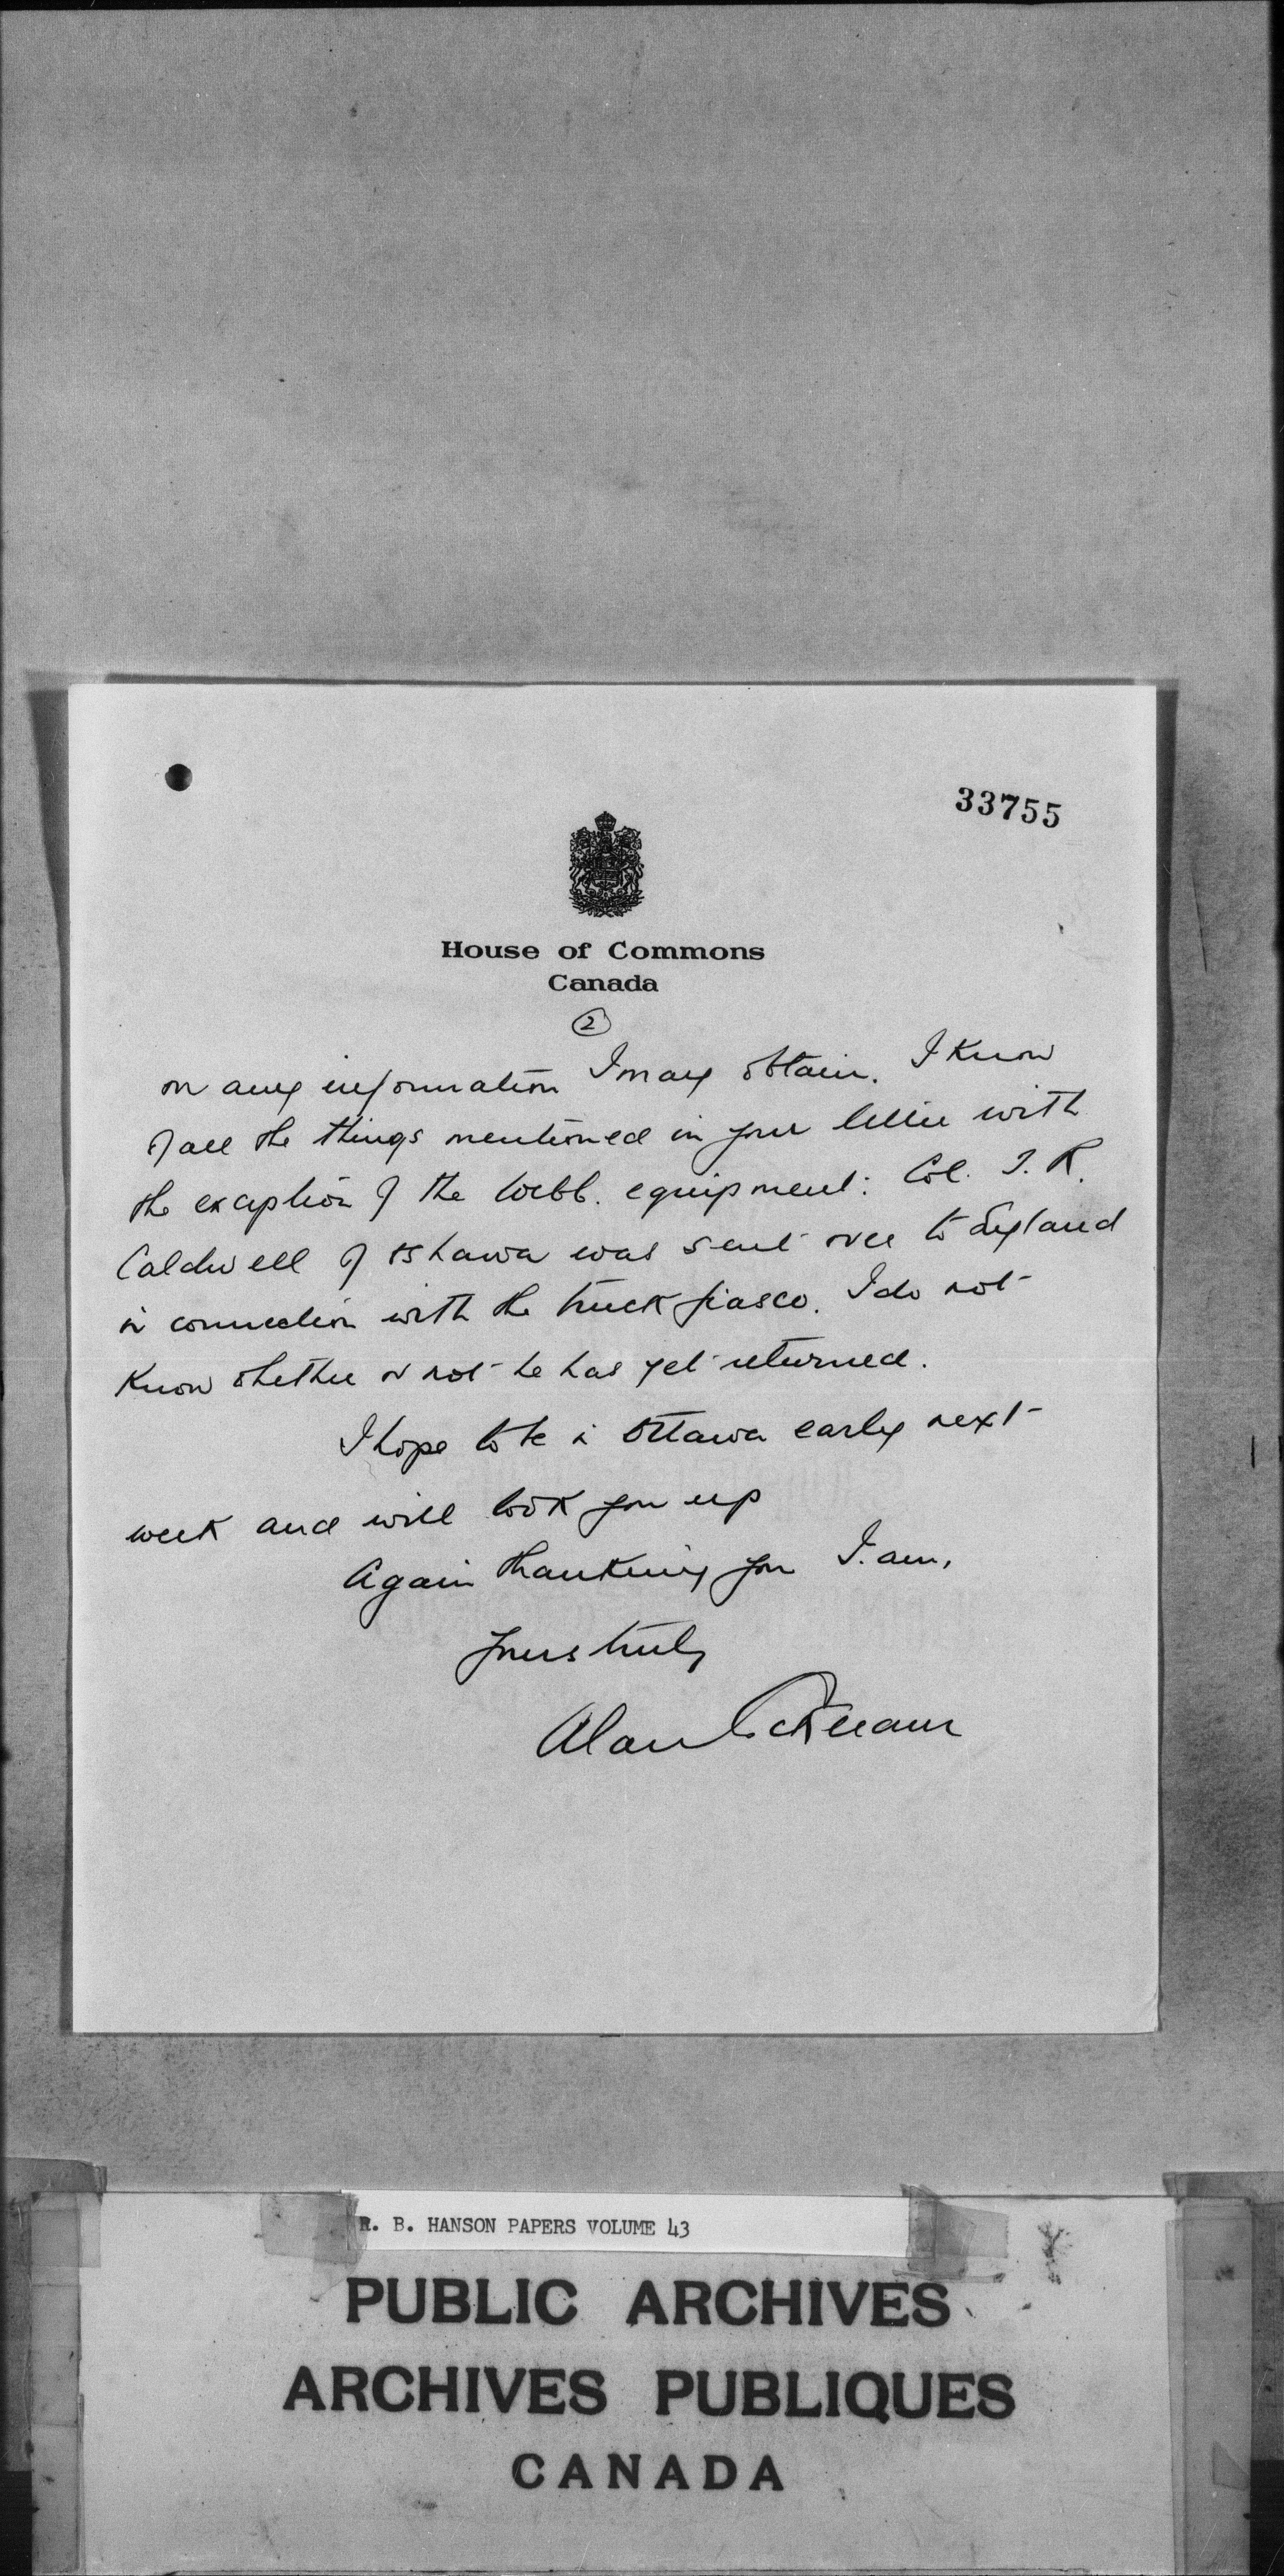 33755
House of Commons
Canada
2
on any information I may obtain. I know
of all the things mentioned in your letter with
the exception of the Webb. equipment: Col. T. R.
Caldwell of Oshawa was sent over to England
in connection with the truck fiasco. I do not
know whether or not he has yet returned.
I hope to be in Ottawa early next
week and will look you up
Again thanking you I am,
Yours truly
Alan Cockeram
R. B. HANSON PAPERS VOLUME 43
PUBLIC ARCHIVES
ARCHIVES PUBLIQUES
CANADA